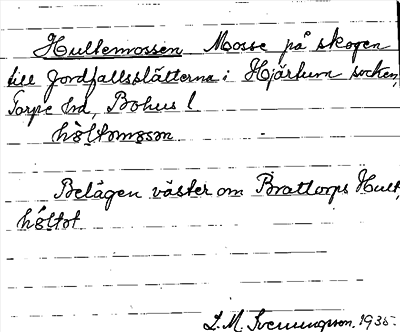 Hultemossen Mosse på skogen
till Jordfallsslätterna i Hjärtum socken,
Torpe hd, Bohus l
hòltəmosən
Belägen väster om Brattorps Hult,
hóltət
L. M. Svenungsson. 1935.